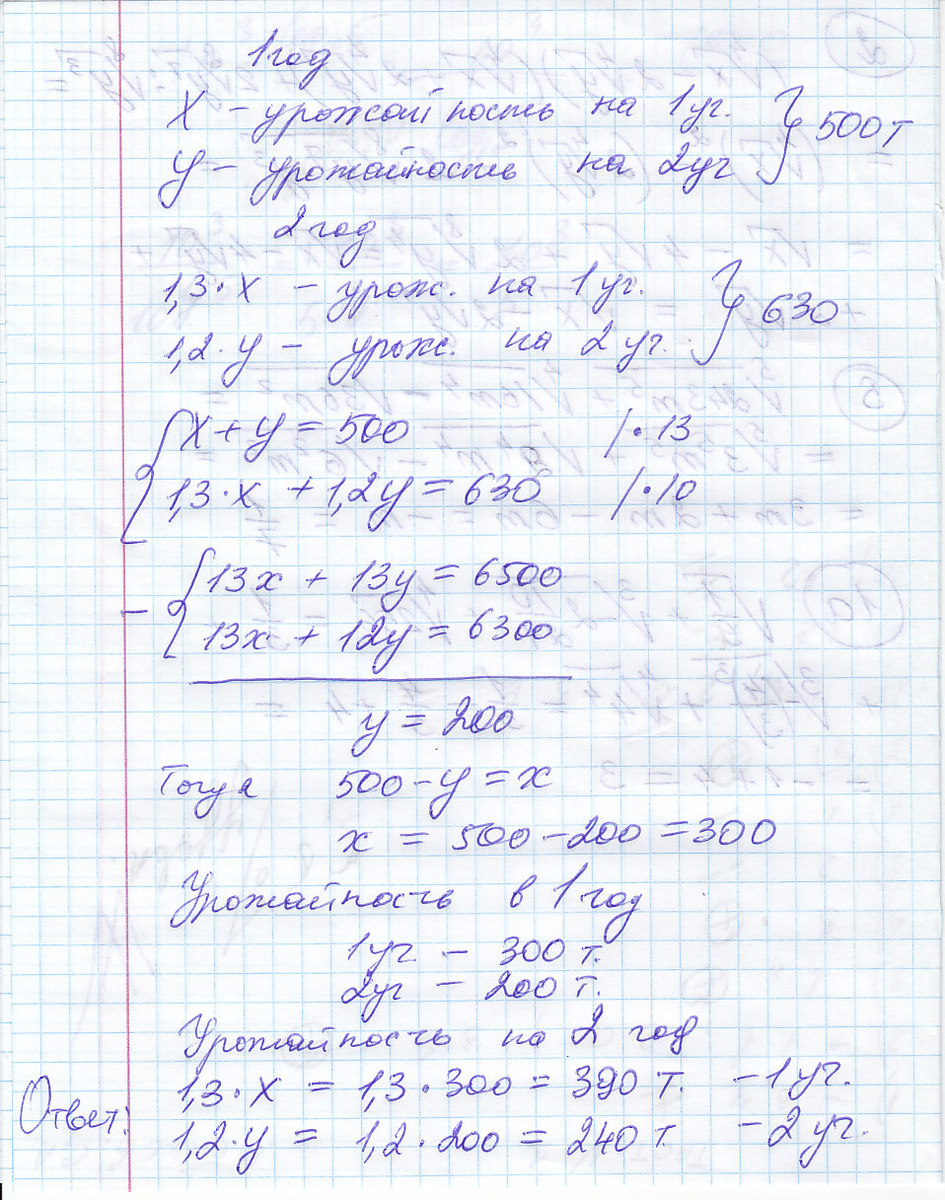 1 год
X – урожайность на 1 уч. } 500 т
y – урожайность на 2 уч
2 год
1,3·x – урож. на 1 уч. } 630
1,2·y – урож. на 2 уч.
{ x + y = 500 /·13
1,3·x + 1,2y = 630 /·10
– { 13x + 13y = 6500
13x + 12y = 6300
y = 200
Тогда 500 – y = x
x = 500 – 200 = 300
Урожайность в 1 год
1 уч – 300 т.
2 уч – 200 т.
Урожайность на 2 год
1,3·x = 1,3·300 = 390 т. – 1 уч.
Ответ:
1,2·y = 1,2·200 = 240 т. – 2 уч.